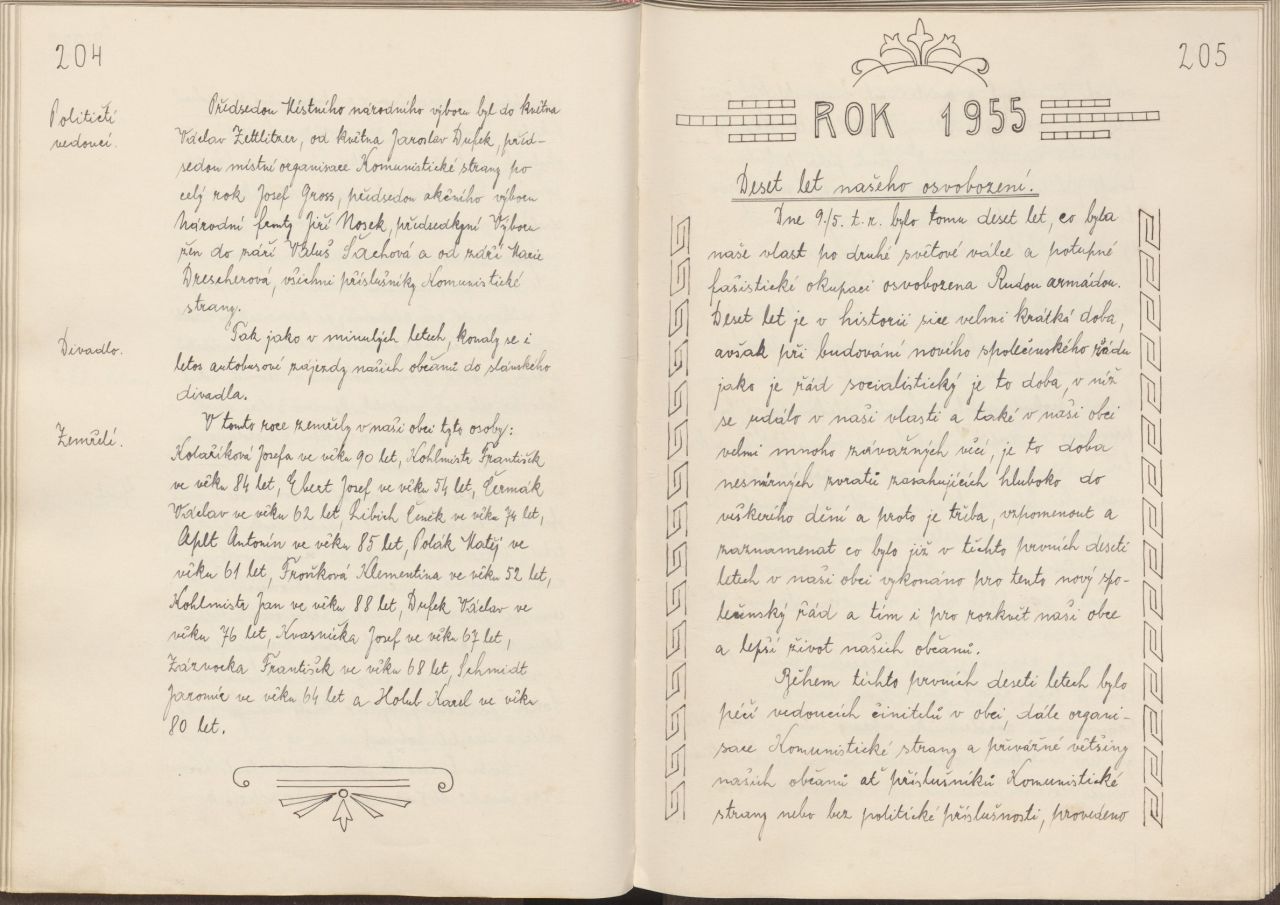 204
Političtí
vedoucí.
Předsedou Místního národního výboru byl do května
Václav Zettlitzer, od května Jaroslav Dufek, před-
sedou místní organisace Komunistické strany po
celý rok Josef Gross, předsedou akčního výboru
Národní fronty Jiří Nosek, předsedkyní Výboru
žen do září Václava Šachová a od září Marie
Drescherová, všichni příslušníky Komunistické
strany.
Divadlo.
Tak jako v minulých letech, konaly se i
letos autobusové zájezdy našich občanů do slánského
divadla.
Zemřelí.
V tomto roce zemřely v naší obci tyto osoby:
Kolaříková Josefa ve věku 90 let, Kohlmistr František
ve věku 84 let, Ebert Josef ve věku 54 let, Čermák
Václav ve věku 62 let, Libich Čeněk ve věku 74 let,
Aplt Antonín ve věku 85 let, Polák Matěj ve
věku 61 let, Froňková Klementina ve věku 52 let,
Kohlmistr Jan ve věku 88 let, Dufek Václav ve
věku 76 let, Kvasnička Josef ve věku 67 let,
Zázvorka František ve věku 68 let, Schmidt
Jaromír ve věku 64 let a Holub Karel ve věku
80 let.
205
ROK 1955
Deset let našeho osvobození.
Dne 9./5. t. r. bylo tomu deset let, co byla
naše vlast po druhé světové válce a potupné
fašistické okupaci osvobozena Rudou armádou.
Deset let je v historii sice velmi krátká doba,
avšak při budování nového společenského řádu
jako je řád socialistický je to doba, v níž
se událo v naší vlasti a také v naší obci
velmi mnoho závažných věcí, je to doba
nesmírných zvratů zasahujících hluboko do
veškerého dění a proto je třeba, vzpomenout a
zaznamenat co bylo již v těchto prvních deseti
letech v naší obci vykonáno pro tento nový spo-
lečenský řád a tím i pro rozkvět naší obce
a lepší život našich občanů.
Během těchto prvních deseti letech bylo
péčí vedoucích činitelů v obci, dále organi-
sace Komunistické strany a převážné většiny
našich občanů ať příslušníků Komunistické
strany nebo bez politické příslušnosti, provedeno